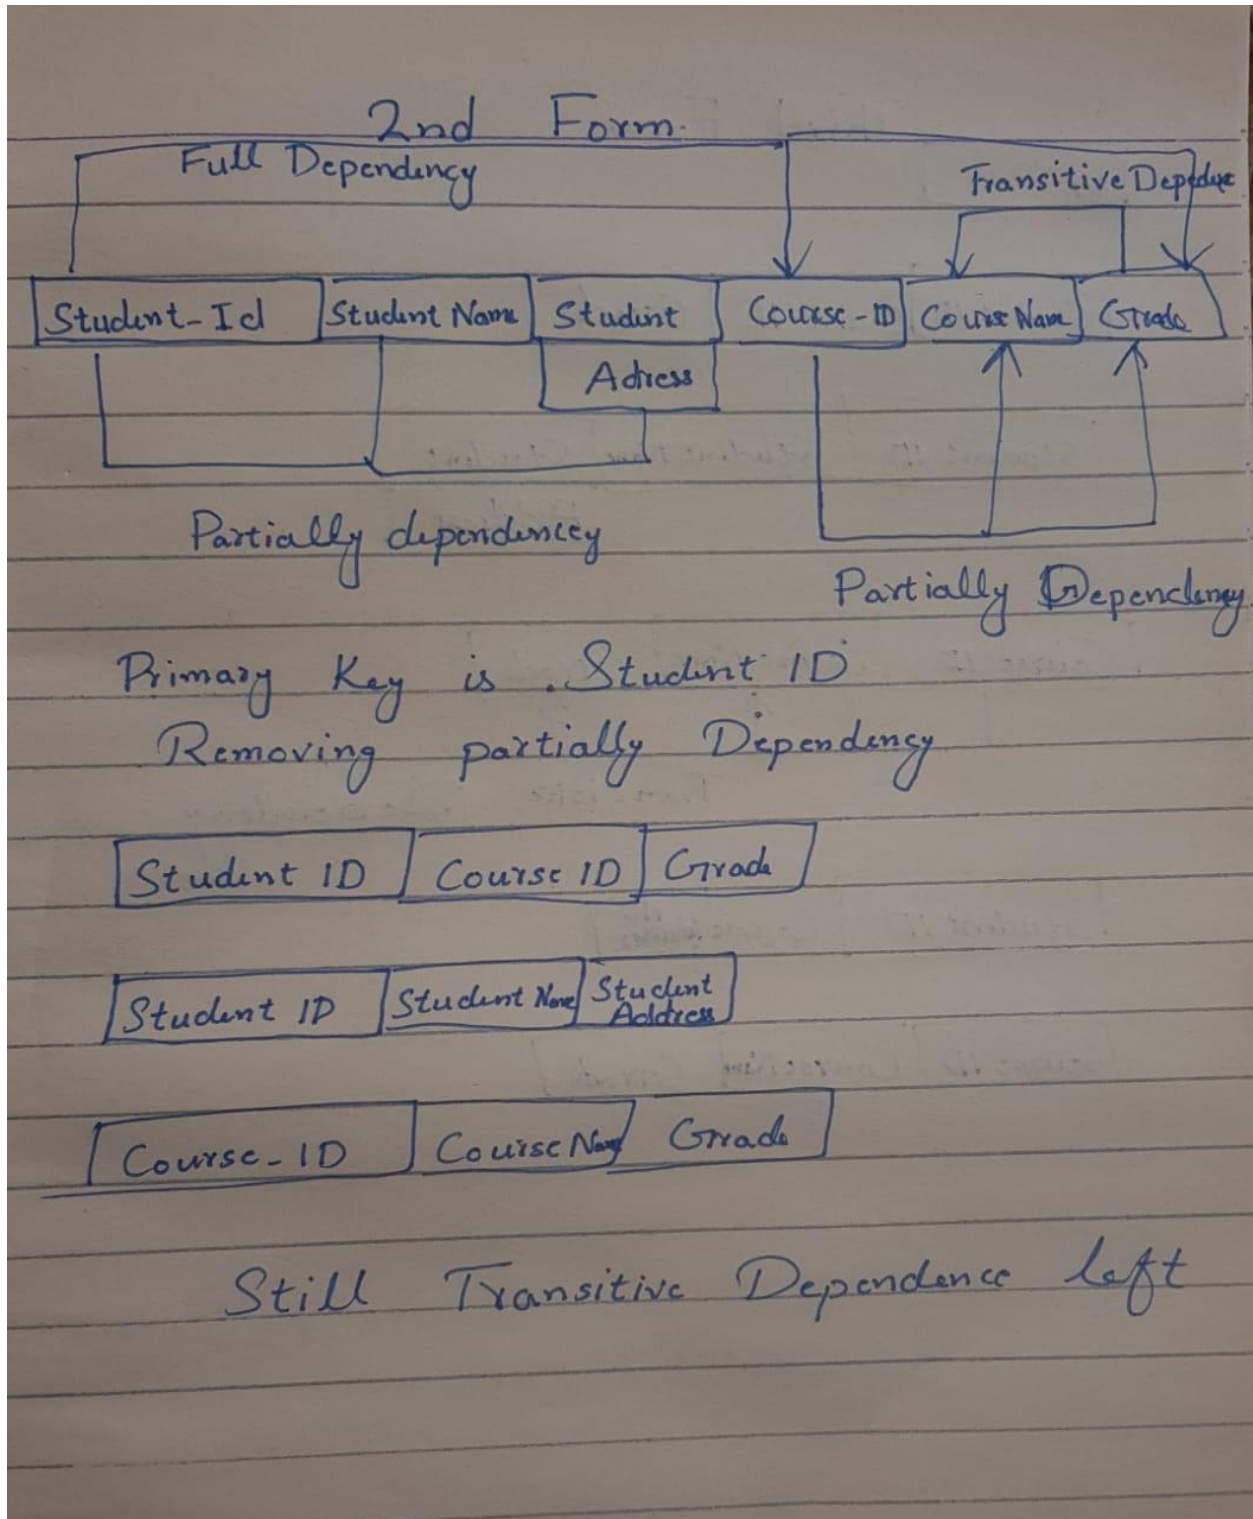 2nd Form.
Full Dependency
Transitive Depedue
Student-Id Student Name Student Course-ID Course Name Grade
Adress
Partially dependencey
Partially Dependency
Primary Key is . Student ID
Removing partially Dependency
Student ID Course ID Grade
Student ID Student Name Student
Address
Course-ID Course Name Grade
Still Transitive Dependence left